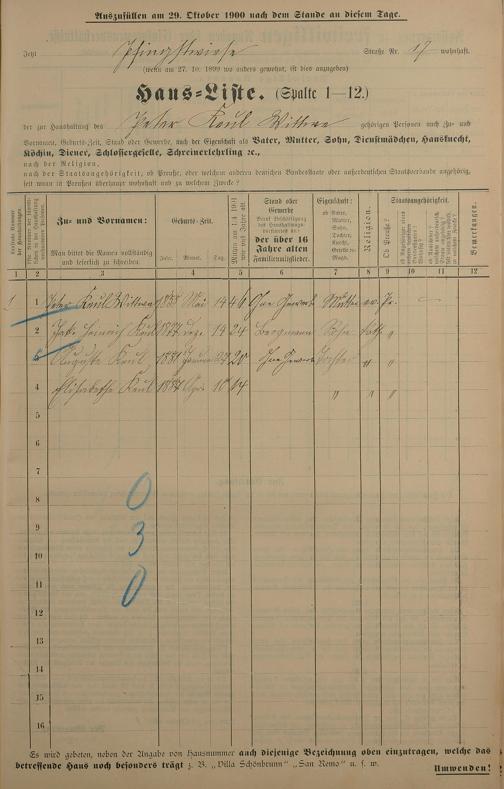 Auszufüllen am 29. Oktober 1900 nach dem Stande an diesem Tage.
Jetzt Pfingstwiese Straße Nr. 17 wohnhaft.
(wenn am 27. 10. 1899 wo anders gewohnt, ist dies anzugeben)
Haus-Liste. (Spalte 1—12.)
der zur Haushaltung des Peter Keul Wittwe gehörigen Personen nach Zu- und
Vornamen, Geburts-Zeit, Stand oder Gewerbe, nach der Eigenschaft als Vater, Mutter, Sohn, Dienstmädchen, Hausknecht,
Köchin, Diener, Schlossergeselle, Schreinerlehrling 2c.,
nach der Religion,
nach der Staatsangehörigkeit, ob Preuße, oder welchem anderen deutschen Bundesstaate oder außerdeutschen Staatsverbande angehörig,
seit wann in Preußen überhaupt wohnhaft und zu welchem Zwecke?
Zu- und Vornamen:
Man bittet die Namen vollständig und leserlich zu schreiben.
Geburts-Zeit.
Jahr. Monat. Tag.
Stand oder Gewerbe
der über 16 Jahre alten Familienmitglieder.
Eigenschaft:
Religion.
Staatsangehörigkeit.
Ob Preuße?
Bemerkungen.
1 2 3 4 5 6 7 8 9 10 11 12
1 1 Peter Keul Wittwe Mai 14 46 Ohne Gewerbe Mutter ev. Pr. —
2 Heinrich Keul Dez. 19 24 Bergmann Sohn kath. "
3 Auguste Keul 1881 Januar 20 Ohne Gewerbe Tochter " "
4 Elisabethe Keul " " "
5
6
7
8 0
9 3
10
11 0
12
13
14
15
16
Es wird gebeten, neben der Angabe von Hausnummer auch diejenige Bezeichnung oben einzutragen, welche das
betreffende Haus noch besonders trägt z. B. „Villa Schönbrunn" „San Remo" u. s. w. Umwenden!